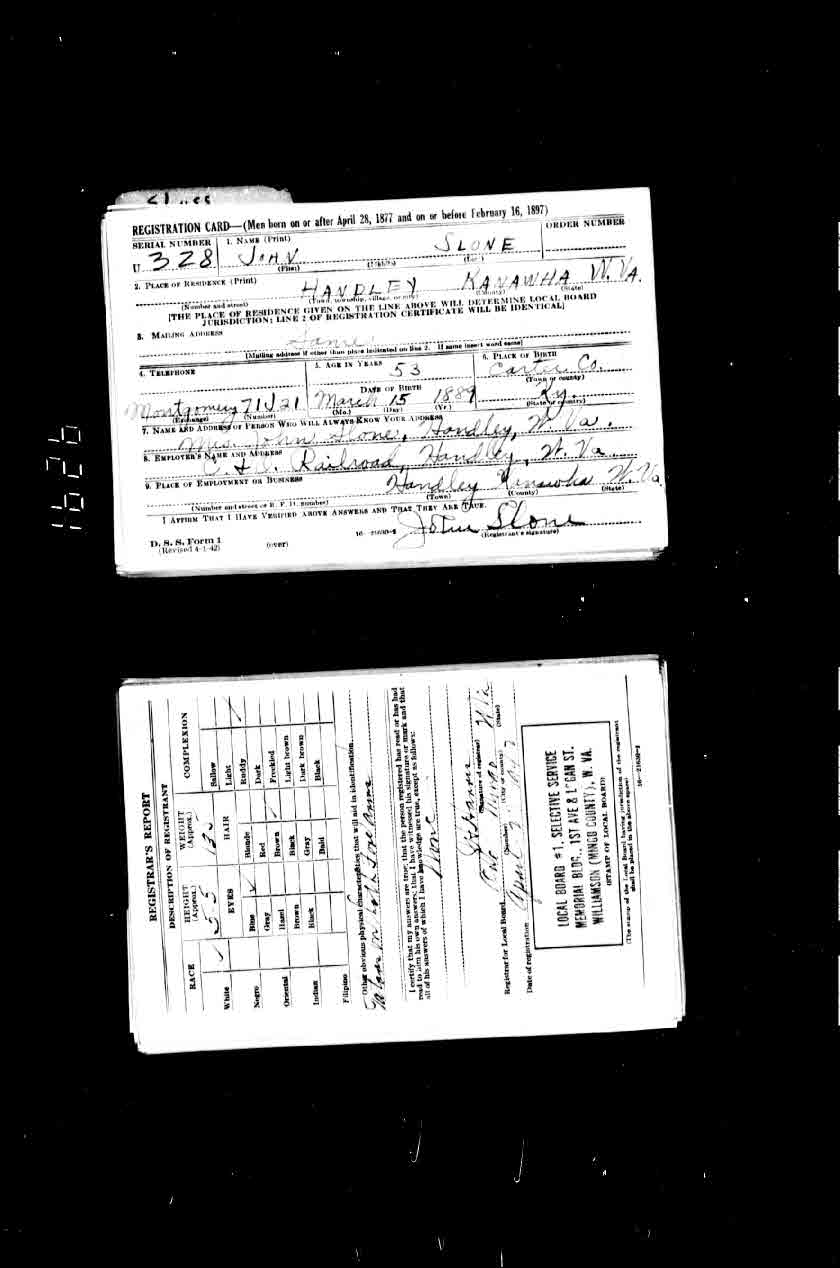 REGISTRATION CARD—(Men born on or after April 28, 1877 and on or before February 16, 1897)
SERIAL NUMBER 1. NAME (Print) ORDER NUMBER
U 328 JOHN SLONE
(First) (Middle) (Last)
2. PLACE OF RESIDENCE (Print)
HANDLEY KANAWHA W. VA.
(Number and street) (Town, township, village, or city) (County) (State)
[THE PLACE OF RESIDENCE GIVEN ON THE LINE ABOVE WILL DETERMINE LOCAL BOARD
JURISDICTION; LINE 2 OF REGISTRATION CERTIFICATE WILL BE IDENTICAL]
3. MAILING ADDRESS
Same
[Mailing address if other than place indicated on line 2. If same insert word same]
4. TELEPHONE 5. AGE IN YEARS 6. PLACE OF BIRTH
53 Carter Co.
(Town or county)
DATE OF BIRTH
Montgomery 71J21 March 15 1889 Ky.
(Exchange) (Number) (Mo.) (Day) (Yr.) (State or country)
7. NAME AND ADDRESS OF PERSON WHO WILL ALWAYS KNOW YOUR ADDRESS
Mrs. John Slone, Handley, W. Va.
8. EMPLOYER'S NAME AND ADDRESS
C. & O. Railroad, Handley, W. Va.
9. PLACE OF EMPLOYMENT OR BUSINESS
Handley Kanawha W. Va.
(Number and street or R. F. D. number) (Town) (County) (State)
I AFFIRM THAT I HAVE VERIFIED ABOVE ANSWERS AND THAT THEY ARE TRUE.
John Slone
D. S. S. Form 1
(Revised 4-1-42) (over) 16—21630-2 (Registrant's signature)
1626
REGISTRAR'S REPORT
DESCRIPTION OF REGISTRANT
RACE HEIGHT (Approx.) WEIGHT (Approx.) COMPLEXION
5 5 135
EYES HAIR
White Blue Blonde Sallow
Light
Negro Gray Red Ruddy
Dark
Oriental Hazel Brown Freckled
Brown Black Light brown
Indian Black Gray Dark brown
Filipino Bald Black
Other obvious physical characteristics that will aid in identification
Tatoos on both fore arms
I certify that my answers are true; that the person registered has read or has had
read to him his own answers; that I have witnessed his signature or mark and that
all of his answers of which I have knowledge are true, except as follows:
None
(Signature of registrar)
Registrar for Local Board
(Number) (City or county) (State)
Date of registration April
LOCAL BOARD #1, SELECTIVE SERVICE
MEMORIAL BLDG., 1ST AVE & LOGAN ST.
WILLIAMSON (MINGO COUNTY), W. VA.
(STAMP OF LOCAL BOARD)
(The stamp of the Local Board having jurisdiction of the registrant
shall be placed in the above space)
16—21630-2